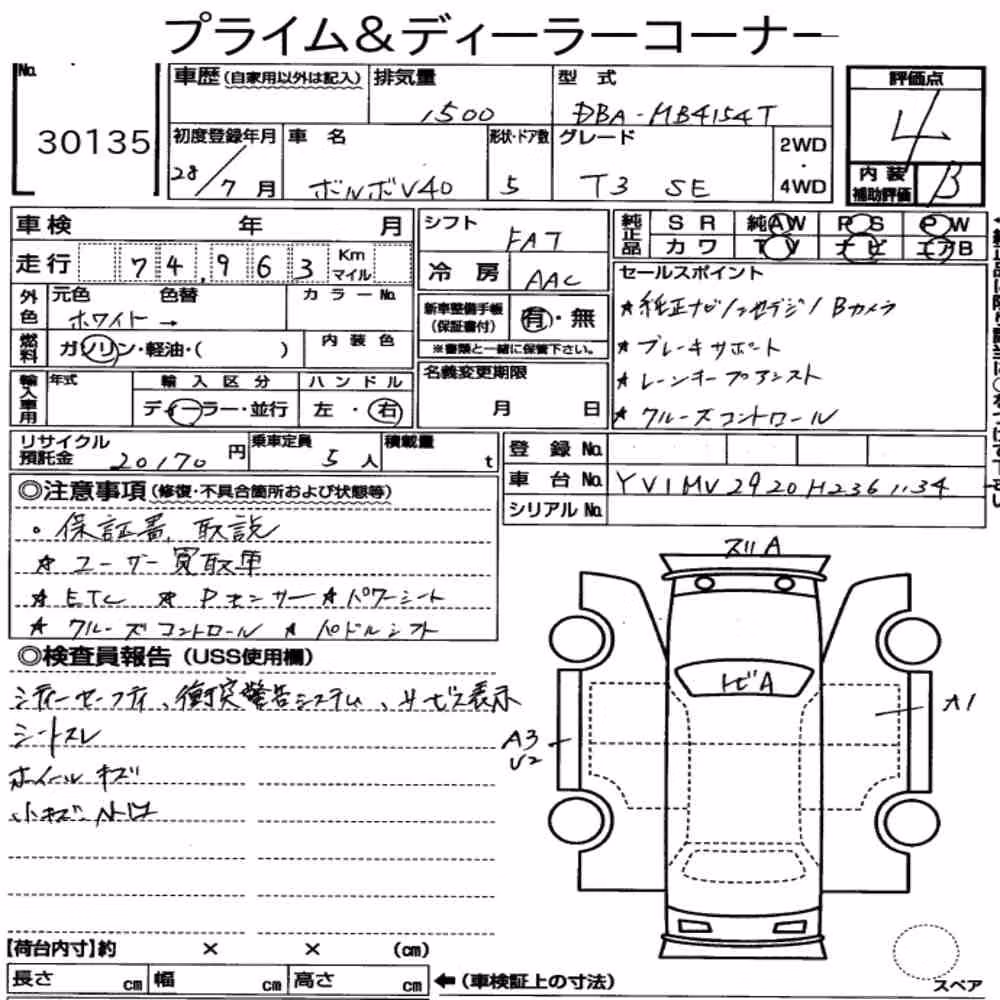 プライム&ディーラーコーナー
No. 30135
車歴 (自家用以外は記入)
排気量 1500
型式 DBA-MB4154T
評価点 4
内装補助評価 B
初度登録年月 28/7月
車名 ボルボV40
形状・ドア数 5
グレード T3 SE
2WD・4WD
車検 年 月
走行 74,963 Km マイル
シフト FAT
冷房 AAC
純正品 SR 純AW PS PW
カワ TV ナビ エアB
外色 元色 色替 カラーNo.
ホワイト→
燃料 ガソリン・軽油・( )
内装色
新車整備手帳 (保証書付) 有・無
※書類と一緒に保管下さい。
セールスポイント
★純正ナビ/フルセグ地デジ/Bカメラ
★ブレーキサポート
★レーンキープアシスト
★クルーズコントロール
輸入車用 年式 輸入区分 ディーラー・並行
ハンドル 左・右
名義変更期限 月 日
リサイクル預託金 20170円
乗車定員 5人
積載量 t
登録No.
車台No. YV1MV2920H2361134
シリアルNo.
◎注意事項 (修復・不具合箇所および状態等)
・保証書、取説
★ユーザー買取車
★ETC ★Pセンサー ★パワーシート
★クルーズコントロール ★パドルシフト
◎検査員報告 (USS使用欄)
シティーセーフティ、衝突警告システム、サービス表示
シートスレ
ホイールキズ
小キズ
ズリA
トビA
A3
U2
A1
【荷台内寸】約 × × (cm)
長さ cm 幅 cm 高さ cm ←(車検証上の寸法)
スペア